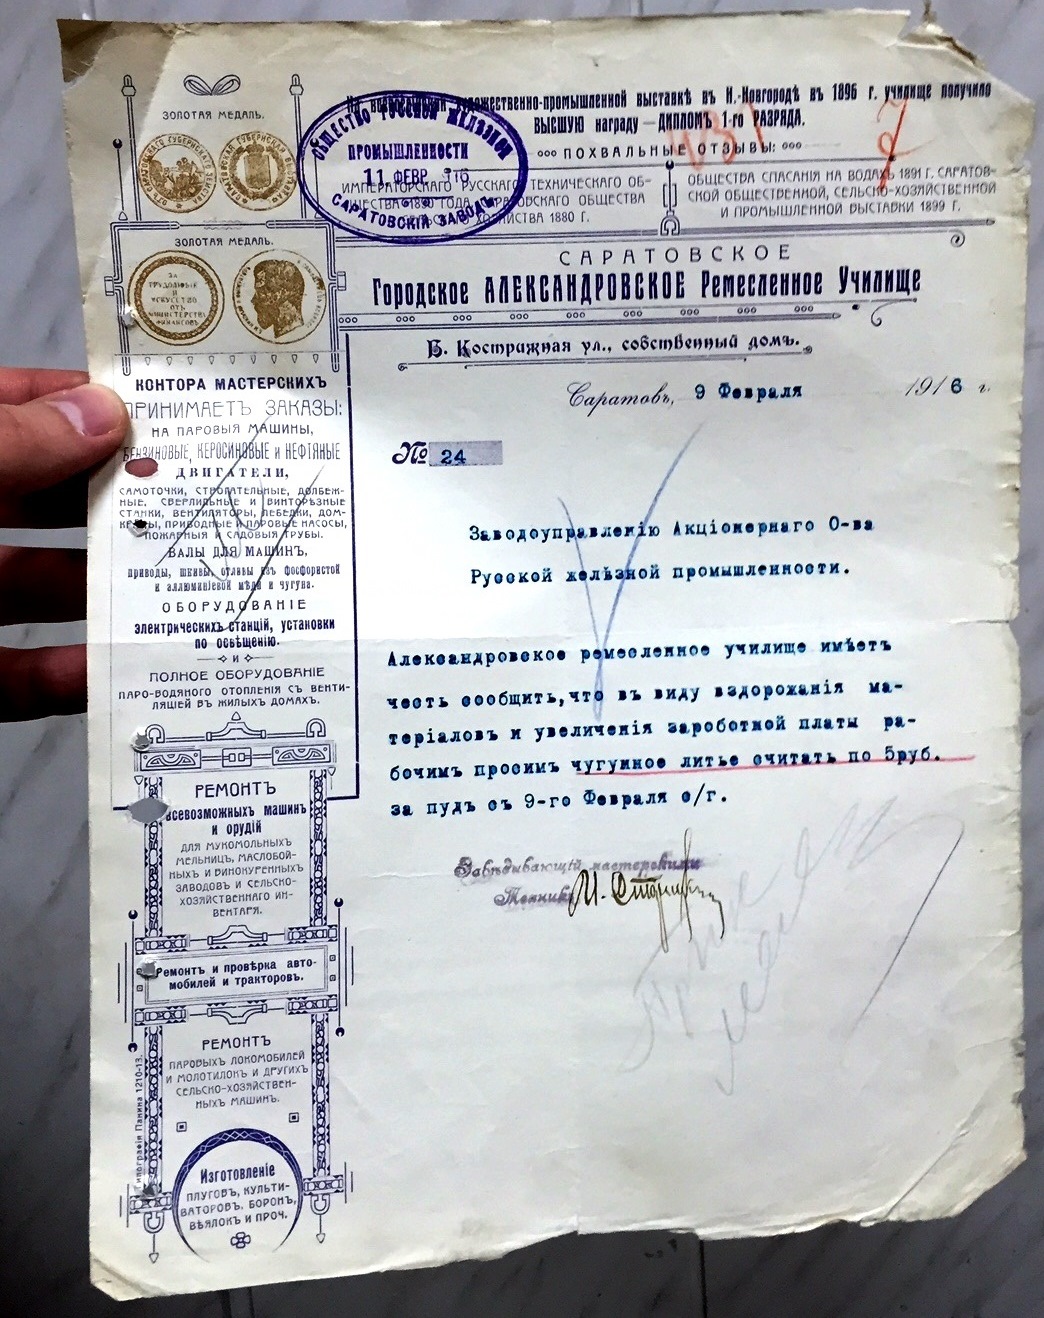 На всероссійской художественно-промышленной выставкѣ въ Н.-Новгородѣ въ 1896 г. училище получило
ВЫСШУЮ награду — ДИПЛОМЪ 1-го РАЗРЯДА.
ПОХВАЛЬНЫЕ ОТЗЫВЫ:
ИМПЕРАТОРСКАГО РУССКАГО ТЕХНИЧЕСКАГО ОБ-
ЩЕСТВА 1890 ГОДА, САРАТОВСКАГО ОБЩЕСТВА
СЕЛЬСКАГО ХОЗЯЙСТВА 1880 Г.
ОБЩЕСТВА СПАСАНІЯ НА ВОДАХЪ 1891 Г. САРАТОВ-
СКОЙ ОБЩЕСТВЕННОЙ, СЕЛЬСКО-ХОЗЯЙСТВЕННОЙ
И ПРОМЫШЛЕННОЙ ВЫСТАВКИ 1899 Г.
ОБЩЕСТВО РУССКОЙ ЖЕЛѢЗНОЙ
ПРОМЫШЛЕННОСТИ
11 ФЕВР. 1916
САРАТОВСКІЙ ЗАВОДЪ
7
ЗОЛОТАЯ МЕДАЛЬ.
ЗОЛОТАЯ МЕДАЛЬ.
ЗА
ТРУДОЛЮБІЕ
И
ИСКУССТВО
ОТЪ
МИНИСТЕРСТВА
ФИНАНСОВЪ
САРАТОВСКОЕ
Городское АЛЕКСАНДРОВСКОЕ Ремесленное Училище
Б. Кострижная ул., собственный домъ.
Саратовъ, 9 Февраля 1916 г.
№ 24
Заводоуправленію Акціонернаго О-ва
Русской желѣзной промышленности.
Александровское ремесленное училище имѣетъ
честь сообщить, что въ виду вздорожанія ма-
теріаловъ и увеличенія зароботной платы ра-
бочимъ просимъ чугунное литье считать по 5руб.
за пудъ съ 9-го Февраля с/г.
Завѣдывающій мастерскими
Техникъ
КОНТОРА МАСТЕРСКИХЪ
ПРИНИМАЕТЪ ЗАКАЗЫ:
НА ПАРОВЫЯ МАШИНЫ,
БЕНЗИНОВЫЕ, КЕРОСИНОВЫЕ и НЕФТЯНЫЕ
ДВИГАТЕЛИ,
САМОТОЧКИ, СТРОГАТЕЛЬНЫЕ, ДОЛБЕЖ-
НЫЕ, СВЕРЛИЛЬНЫЕ И ВИНТОРѢЗНЫЕ
СТАНКИ, ВЕНТИЛЯТОРЫ, ЛЕБЕДКИ, ДОМ-
КРАТЫ, ПРИВОДНЫЕ И ПАРОВЫЕ НАСОСЫ,
ПОЖАРНЫЯ И САДОВЫЯ ТРУБЫ.
ВАЛЫ ДЛЯ МАШИНЪ,
приводы, шкивы, отливы изъ фосфористой
и аллюминіевой мѣди и чугуна.
ОБОРУДОВАНІЕ
электрическихъ станцій, установки
по освѣщенію.
И
ПОЛНОЕ ОБОРУДОВАНІЕ
ПАРО-ВОДЯНОГО ОТОПЛЕНІЯ СЪ ВЕНТИ-
ЛЯЦІЕЙ ВЪ ЖИЛЫХЪ ДОМАХЪ.
РЕМОНТЪ
всевозможныхъ машинъ
и орудій
ДЛЯ МУКОМОЛЬНЫХ
МЕЛЬНИЦЪ, МАСЛОБОЙ-
НЫХЪ И ВИНОКУРЕННЫХЪ
ЗАВОДОВЪ И СЕЛЬСКО-
ХОЗЯЙСТВЕННАГО ИН-
ВЕНТАРЯ.
Ремонтъ и провѣрка авто-
мобилей и тракторовъ.
РЕМОНТЪ
ПАРОВЫХЪ ЛОКОМОБИЛЕЙ
И МОЛОТИЛОКЪ И ДРУГИХЪ
СЕЛЬСКО-ХОЗЯЙСТВЕН-
НЫХЪ МАШИНЪ.
Изготовленіе
ПЛУГОВЪ, КУЛЬТИ-
ВАТОРОВЪ, БОРОНЪ,
ВѢЯЛОКЪ И ПРОЧ.
Типографія Панина 1210-13.